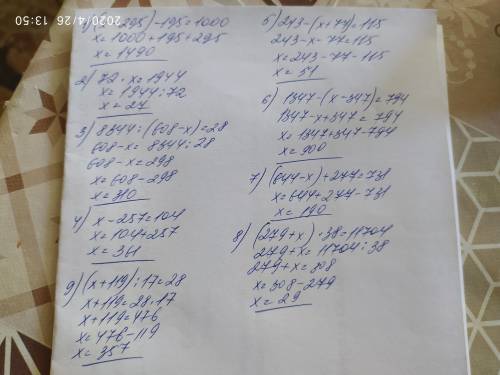 2020/4/26 13:50
295)-195=1000
x=1000+195+295
x=1490
2) 72·x=1944
x=1944:72
x=27
3) 8344:(608-x)=28
608-x=8344:28
608-x=298
x=608-298
x=310
4) x-257=104
x=104+257
x=361
9) (x+119):17=28
x+119=28·17
x+119=476
x=476-119
x=357
5) 243-(x+77)=115
243-x-77=115
x=243-77-115
x=51
6) 1347-(x-347)=794
1347-x+347=794
x=1347+347-794
x=900
7) (644-x)+277=731
x=644+277-731
x=190
8) (279+x)·38=11704
279+x=11704:38
279+x=308
x=308-279
x=29